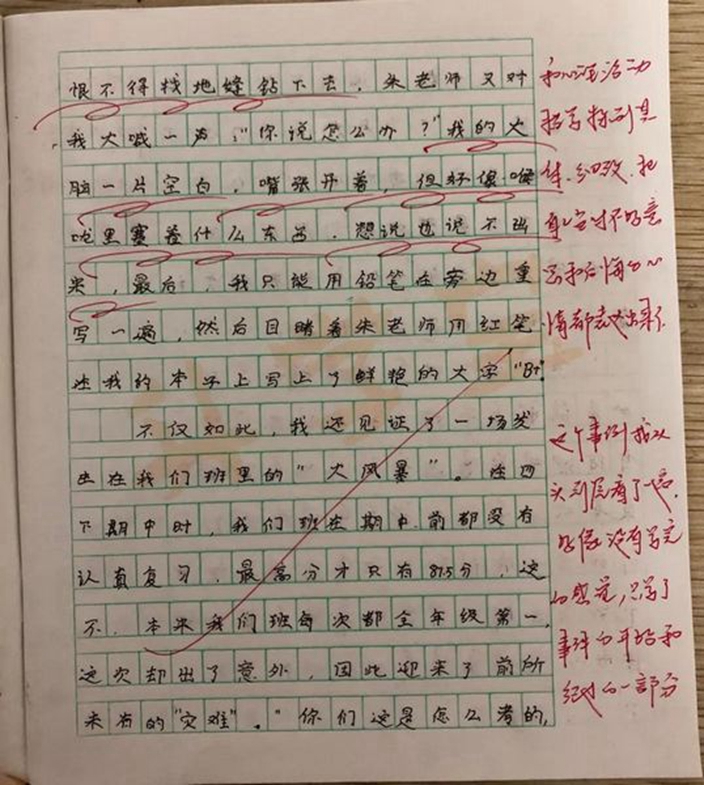 恨不得找地缝钻下去，朱老师又对
我大喊一声："你说怎么办？"我的大
脑一片空白，嘴张开着，但好像喉
咙里塞着什么东西，想说也说不出
来，最后，我只能用铅笔在旁边重
写一遍，然后目睹着朱老师用红笔
在我的本子上写上了鲜艳的大字"B+"
不仅如此，我还见证了一场发
生在我们班里的"大风暴"。在四
下期中时，我们班在期中前都没有
认真复习，最高分才只有87.5分，这
不，本来我们班每次都全年级第一，
这次却出了意外，因此迎来了前所
未有的"灾难"。"你们这是怎么考的，
和心理活动
描写将到具
体、细致，把
自己当时不好意
思和后悔的心
情都表达出来了
这个事例我从
头到尾看了一遍，
好像没有写完
的感觉，只写了
事件的开始和
经过的一部分